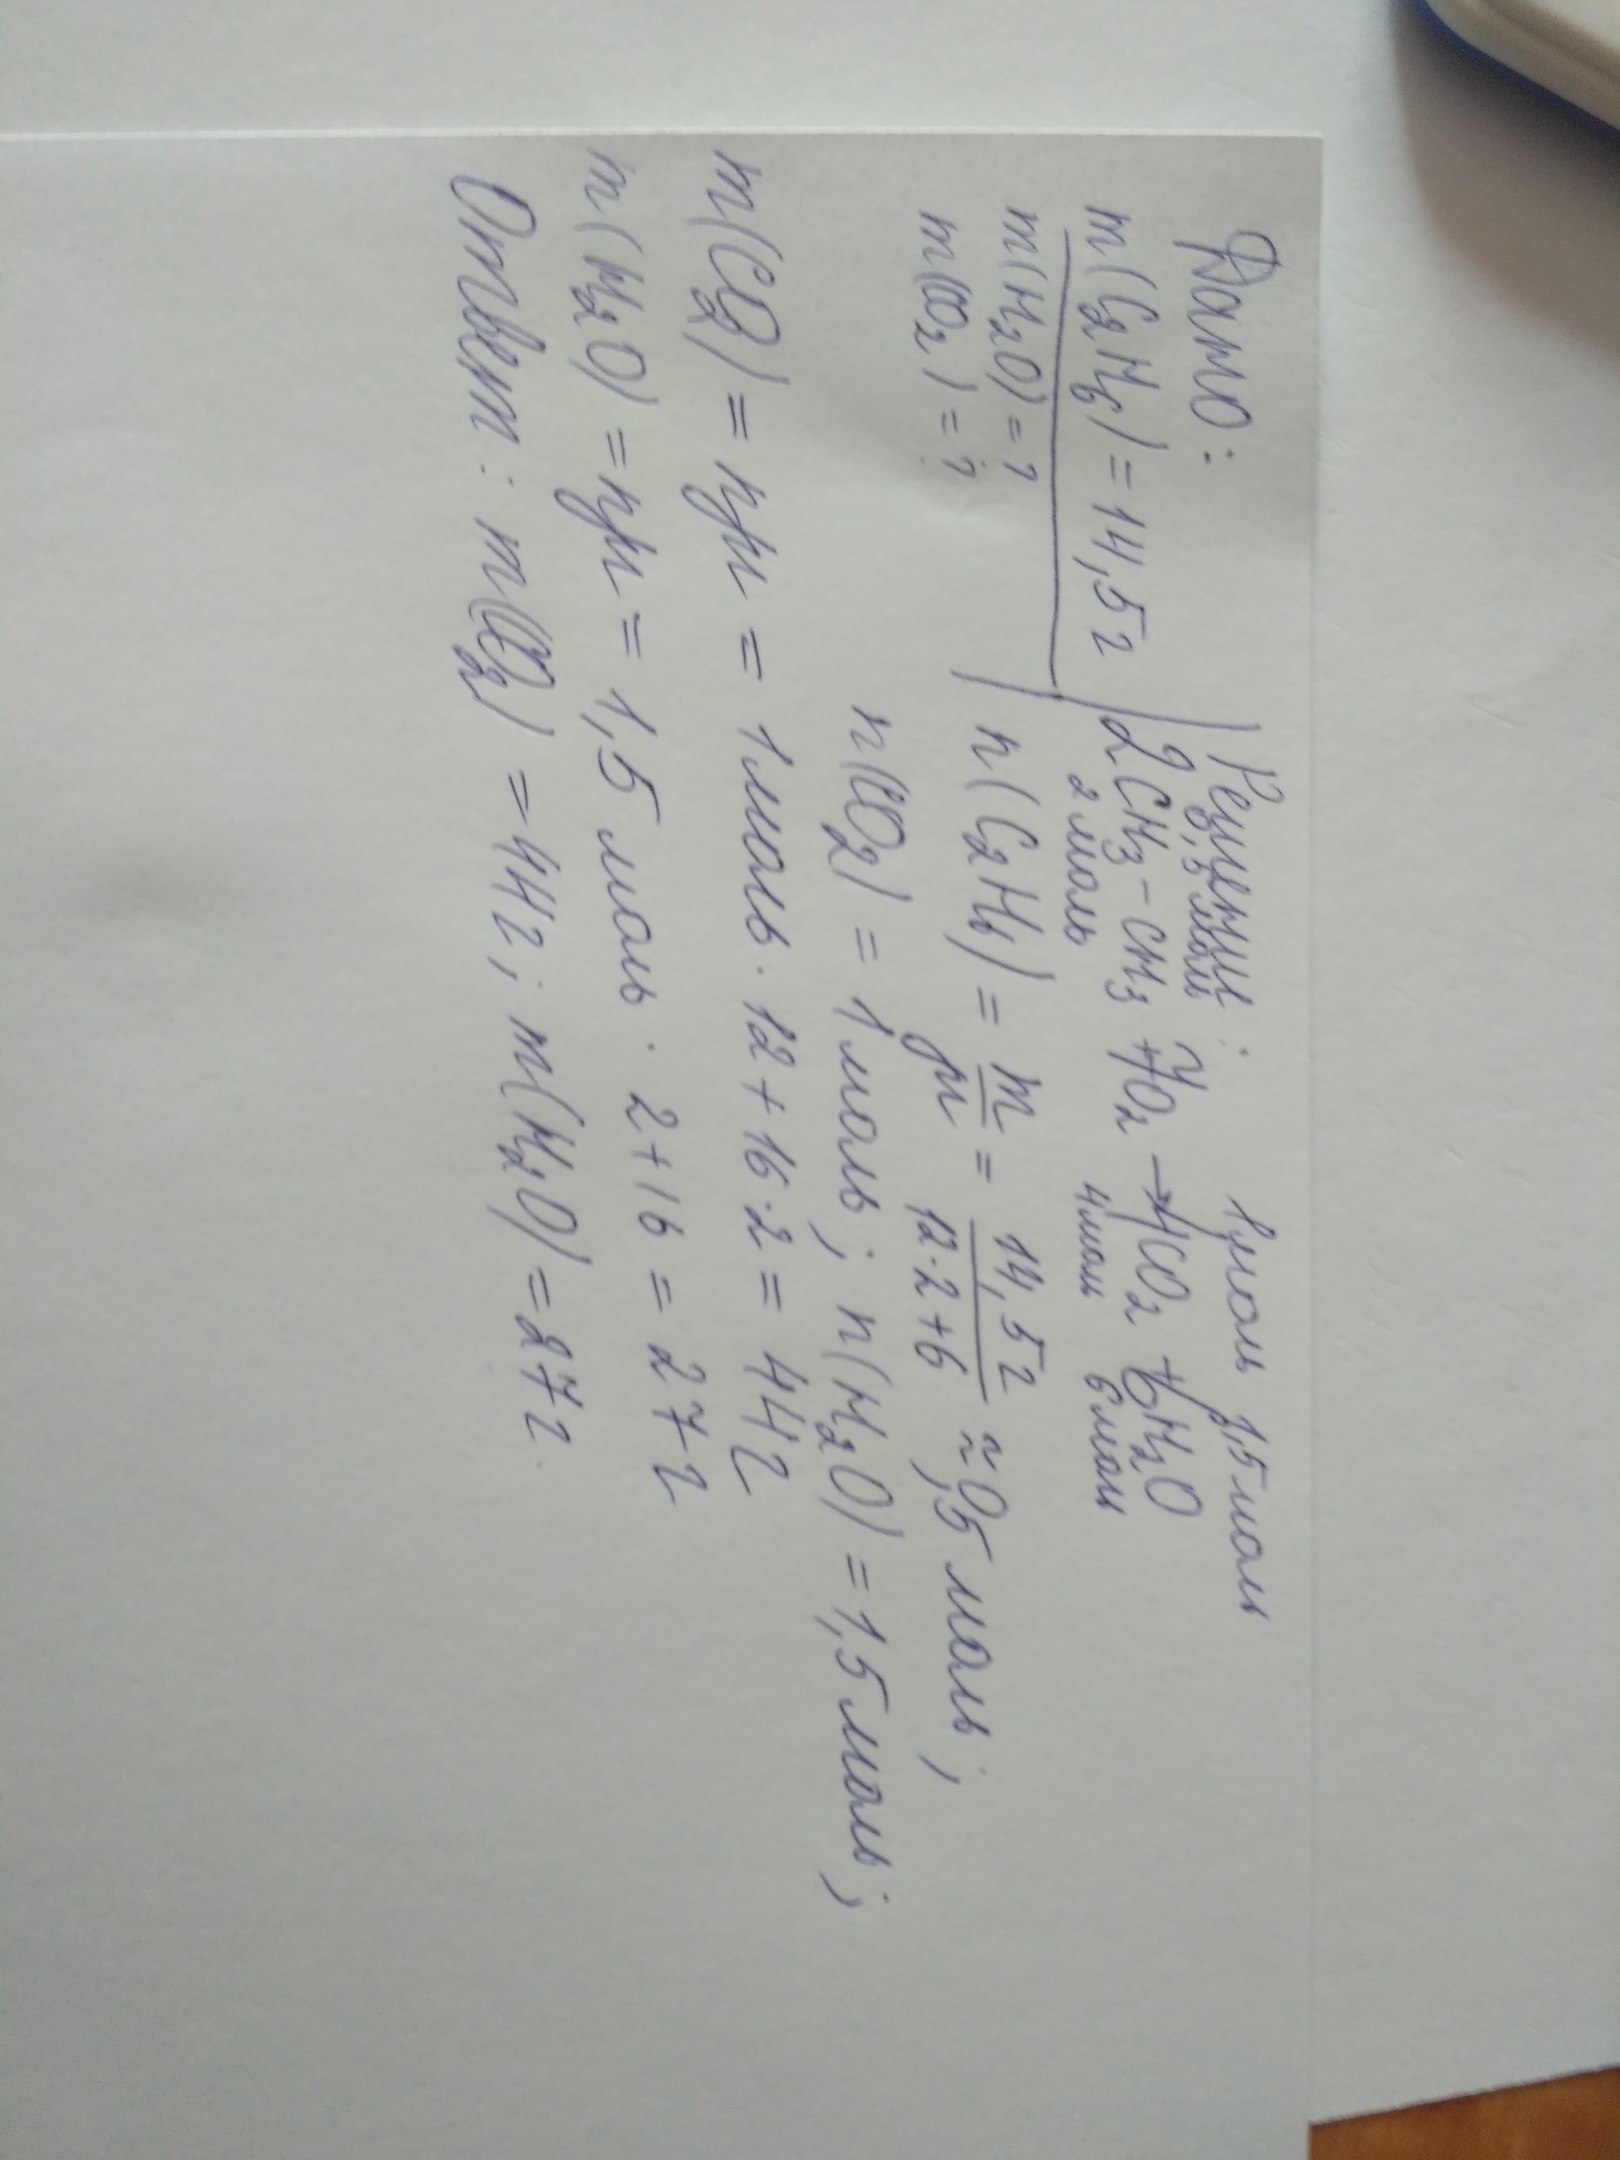 Дано:
m(C2H6) = 14,5г
m(H2O) = ?
m(CO2) = ?
Решение:
1моль 1,5моль
0,5моль y
2CH3-CH3 + 7O2 → 4CO2 + 6H2O
2моль 4моль 6моль
n(C2H6) = m/μ = 14,5г/12·2+6 ≈ 0,5моль;
n(CO2) = 1моль; n(H2O) = 1,5моль;
m(CO2) = nμ = 1моль·12+16·2 = 44г
m(H2O) = nμ = 1,5моль·2+16 = 27г
Ответ: m(CO2) = 44г; m(H2O) = 27г.